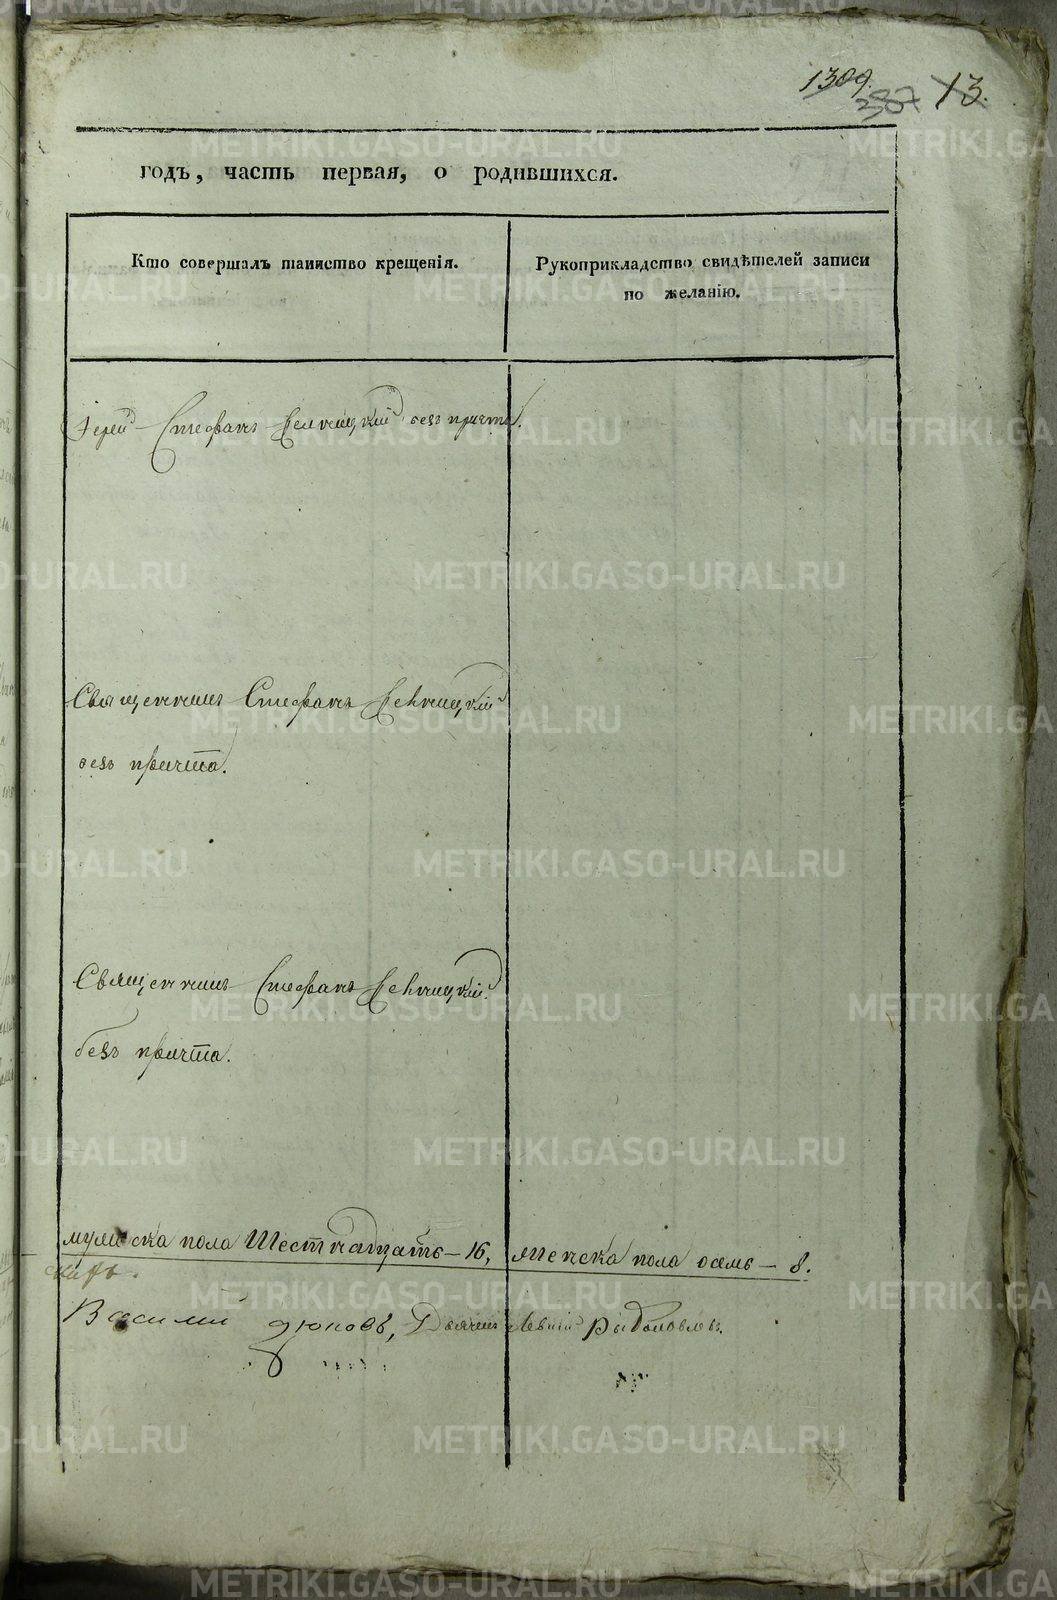 1309.
287 13.
годъ, часть первая, о родившихся.
Кто совершалъ таинство крещенія.
Рукоприкладство свидѣтелей записи
по желанію.
Іерей Стефанъ безъ причта.
Священникъ Стефанъ
безъ причта.
Священникъ Стефанъ
безъ причта.
мужеска пола Шестнадцать – 16, женска пола осмь – 8.
Василий Дюковъ, Дьячекъ Рыболовлевъ.
METRIKI.GASO-URAL.RU